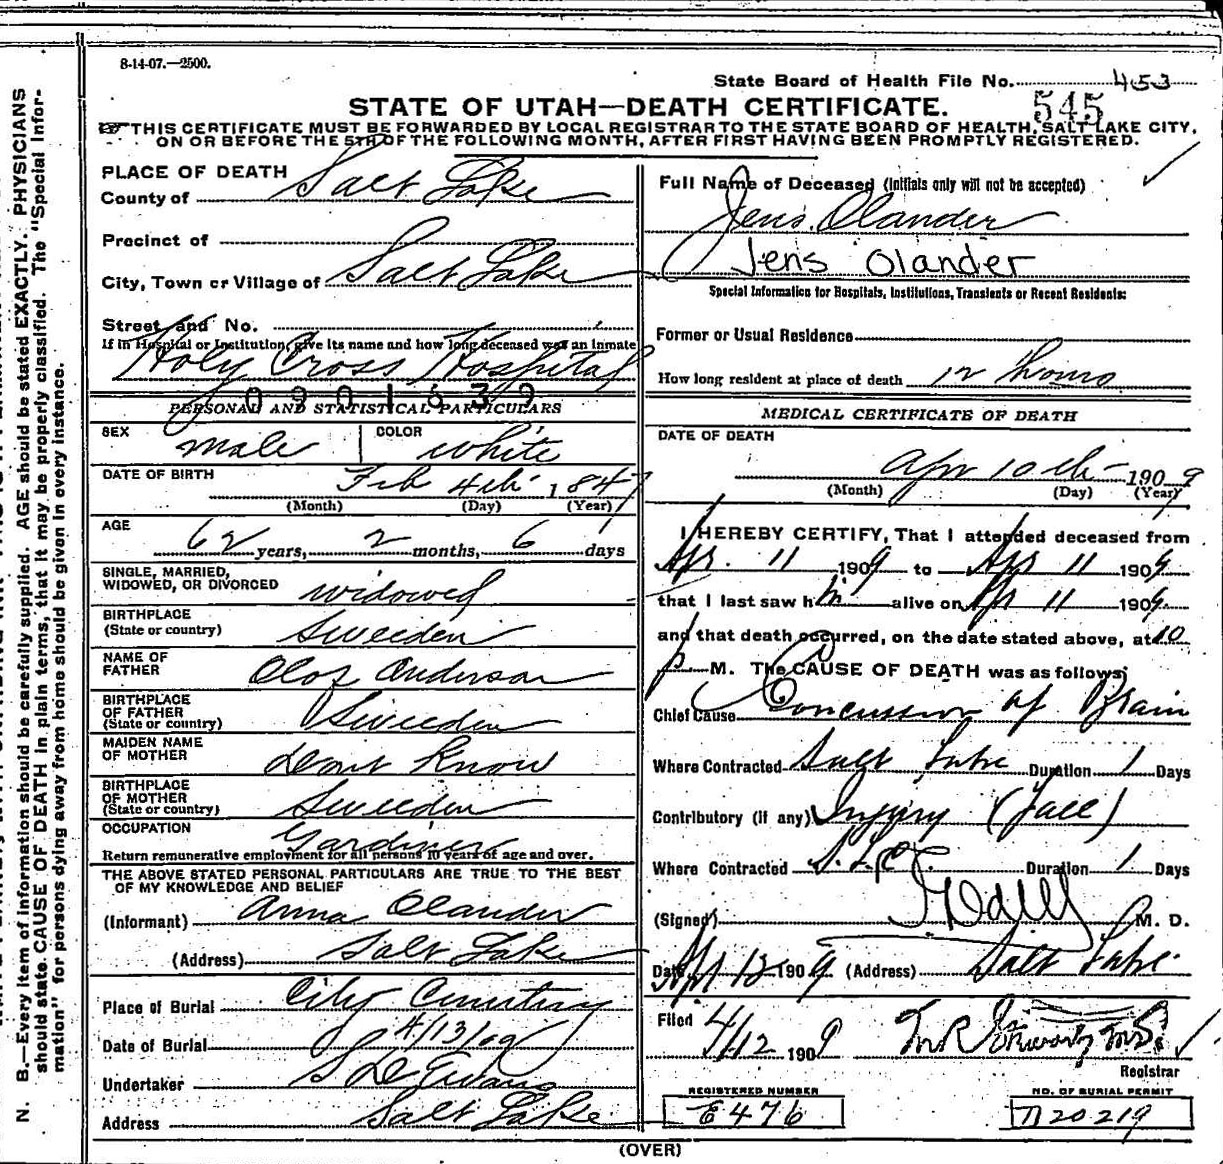 8-14-07.—2500.
State Board of Health File No. 453
STATE OF UTAH—DEATH CERTIFICATE.
545
THIS CERTIFICATE MUST BE FORWARDED BY LOCAL REGISTRAR TO THE STATE BOARD OF HEALTH, SALT LAKE CITY,
ON OR BEFORE THE 5TH OF THE FOLLOWING MONTH, AFTER FIRST HAVING BEEN PROMPTLY REGISTERED.
PLACE OF DEATH
County of Salt Lake
Precinct of
City, Town or Village of Salt Lake
Street and No.
If in Hospital or Institution, give its name and how long deceased was an inmate
Holy Cross Hospital
0901639
PERSONAL AND STATISTICAL PARTICULARS
SEX male COLOR white
DATE OF BIRTH Feb 4th 1847
(Month) (Day) (Year)
AGE 62 years, 2 months, 6 days
SINGLE, MARRIED,
WIDOWED, OR DIVORCED widowed
BIRTHPLACE
(State or country) Sweeden
NAME OF
FATHER Olof Anderson
BIRTHPLACE
OF FATHER
(State or country) Sweeden
MAIDEN NAME
OF MOTHER dont Know
BIRTHPLACE
OF MOTHER
(State or country) Sweeden
OCCUPATION Gardiner
Return remunerative employment for all persons 10 years of age and over.
THE ABOVE STATED PERSONAL PARTICULARS ARE TRUE TO THE BEST
OF MY KNOWLEDGE AND BELIEF
(Informant) Anna Olander
(Address) Salt Lake
Place of Burial City Cemetery
Date of Burial 4/13/09
Undertaker S D Evans
Address Salt Lake
Full Name of Deceased (Initials only will not be accepted)
Jens Olander
Jens Olander
Special Information for Hospitals, Institutions, Transients or Recent Residents:
Former or Usual Residence
How long resident at place of death 12 hours
MEDICAL CERTIFICATE OF DEATH
DATE OF DEATH
Apr 10th 1909
(Month) (Day) (Year)
I HEREBY CERTIFY, That I attended deceased from
Apr. 11 1909 to Apr 11 1909
that I last saw him alive on Apr 11 1909.
and that death occurred, on the date stated above, at 10
p M. The CAUSE OF DEATH was as follows:
Chief Cause Concussion of Brain
Where Contracted Salt Lake Duration 1 Days
Contributory (if any) Injury (Fall)
Where Contracted S.L.C. Duration 1 Days
(Signed) M. D.
Date Apr 12 1909 (Address) Salt Lake
Filed 4/12 1909
Registrar
REGISTERED NUMBER
E476
NO. OF BURIAL PERMIT
A20219
(OVER)
N. B.—Every item of information should be carefully supplied. AGE should be stated EXACTLY. PHYSICIANS
should state CAUSE OF DEATH in plain terms, that it may be properly classified. The "Special Infor-
mation" for persons dying away from home should be given in every instance.